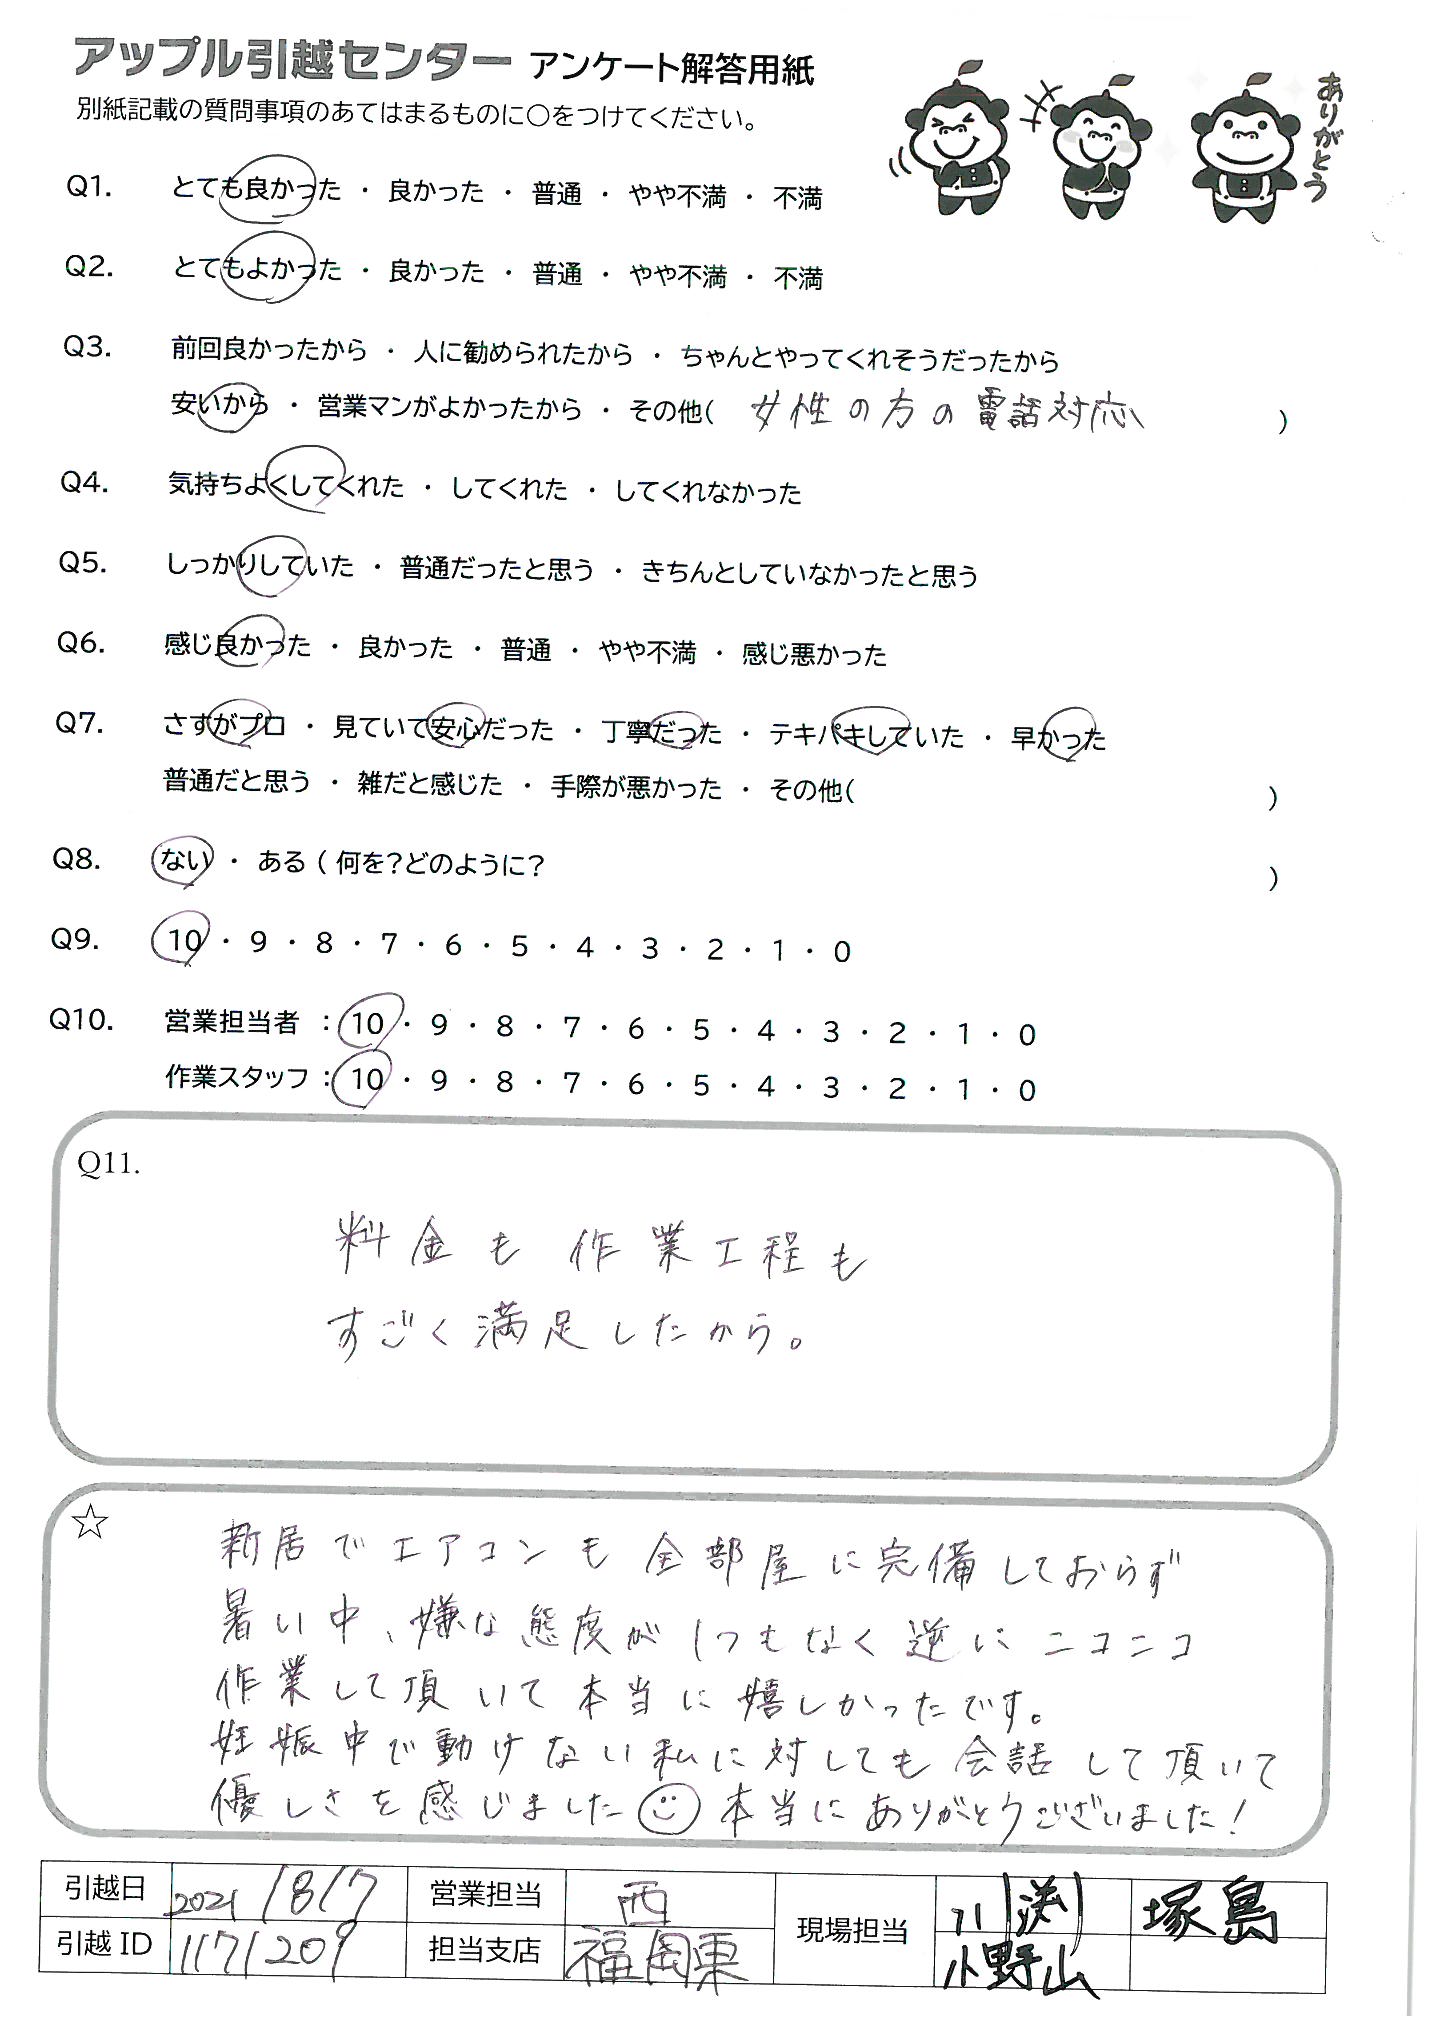 アップル引越センター アンケート解答用紙
別紙記載の質問事項のあてはまるものに〇をつけてください。
ありがとう
Q1. とても良かった ・ 良かった ・ 普通 ・ やや不満 ・ 不満
Q2. とてもよかった ・ 良かった ・ 普通 ・ やや不満 ・ 不満
Q3. 前回良かったから ・ 人に勧められたから ・ ちゃんとやってくれそうだったから
安いから ・ 営業マンがよかったから ・ その他( 女性の方の電話対応 )
Q4. 気持ちよくしてくれた ・ してくれた ・ してくれなかった
Q5. しっかりしていた ・ 普通だったと思う ・ きちんとしていなかったと思う
Q6. 感じ良かった ・ 良かった ・ 普通 ・ やや不満 ・ 感じ悪かった
Q7. さすがプロ ・ 見ていて安心だった ・ 丁寧だった ・ テキパキしていた ・ 早かった
普通だと思う ・ 雑だと感じた ・ 手際が悪かった ・ その他( )
Q8. ない ・ ある ( 何を?どのように? )
Q9. 10 ・ 9 ・ 8 ・ 7 ・ 6 ・ 5 ・ 4 ・ 3 ・ 2 ・ 1 ・ 0
Q10. 営業担当者 : 10 ・ 9 ・ 8 ・ 7 ・ 6 ・ 5 ・ 4 ・ 3 ・ 2 ・ 1 ・ 0
作業スタッフ : 10 ・ 9 ・ 8 ・ 7 ・ 6 ・ 5 ・ 4 ・ 3 ・ 2 ・ 1 ・ 0
Q11.
料金も作業工程も
すごく満足したから。
☆
新居でエアコンも全部屋に完備しておらず
暑い中、嫌な態度が1つもなく逆にニコニコ
作業して頂いて本当に嬉しかったです。
妊娠中で動けない私に対しても会話して頂いて
優しさを感じました 本当にありがとうございました!
引越日 2021/8/7 営業担当 西 現場担当 塚島
引越 ID 1171209 担当支店 福岡東 小野山